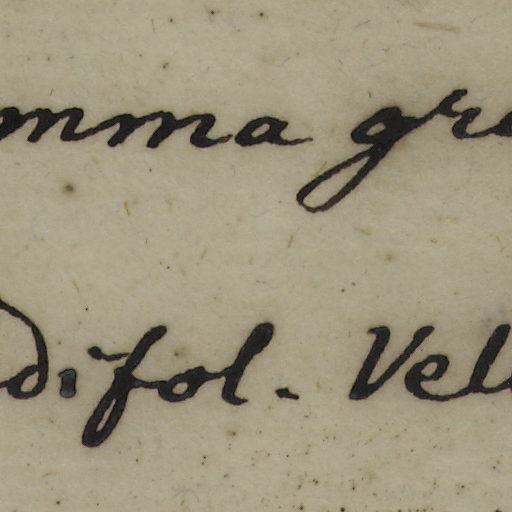 mma gra
difol. Vell